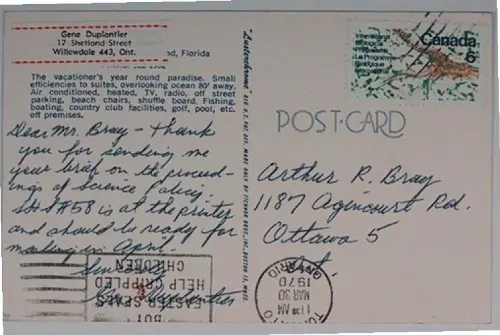 Gene Duplantier
17 Shetland Street
Willowdale 443, Ont.
od, Florida
The vacationer's year round paradise. Small
efficiencies to suites, overlooking ocean 80' away.
Air conditioned, heated, TV, radio, off street
parking, beach chairs, shuffle board. Fishing,
boating, country club facilities, golf, pool, etc.
off premises.
Dear Mr. Bray - thank
you for sending me
your brief on the proceed-
ings of Science Policy.
SHSA#58 is at the printer
and should be ready for
mailing in April.
Sincerely
Gene Duplantier
"Lusterchrome"
Canada
6
POST CARD
Arthur R. Bray
1187 Agincourt Rd.
Ottawa 5
Ont.
BUY
EASTER SEALS
HELP CRIPPLED
CHILDREN
TORONTO
AM
MAR 30
1970
ONTARIO